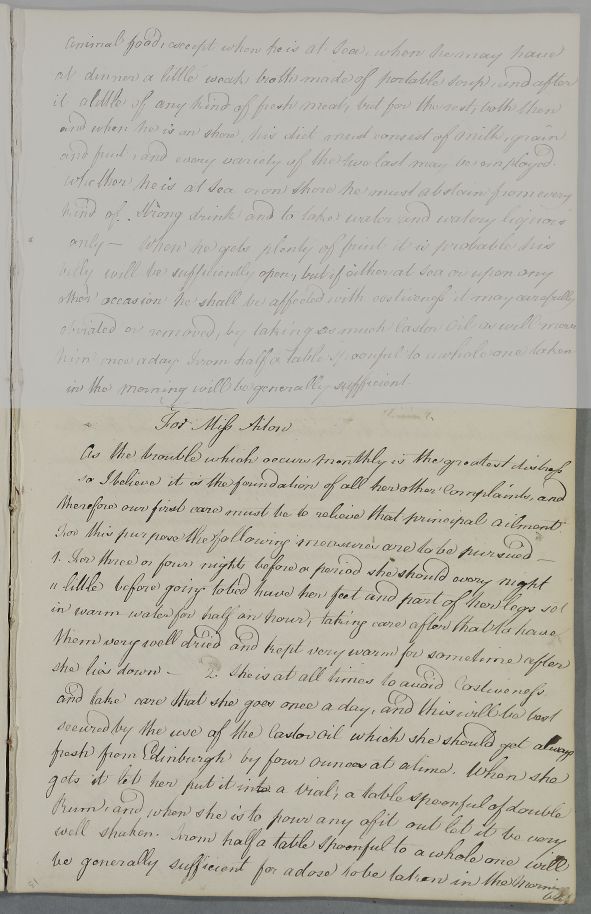 animal food, except when he is at Sea, when he may have
at dinner a little weak broth made of portable soup, and after
it a little of any kind of fresh meat, but for the rest, both then
and when he is on shore, his diet must consist of milk, grain
and fruit, and every variety of the two last may be employed.
Whether he is at Sea or on shore he must abstain from every
kind of Strong drink and to take water and watery liquors
only — When he gets plenty of fruit it is probable his
belly will be sufficiently open, but if either at Sea or upon any
other occasion he shall be affected with costiveness it may carefully
obviated or removed, by taking as much Castor Oil as will move
him once a day From half a table Spoonful to a whole one taken
in the morning will be generally sufficient.
For Miss
As the trouble which occurs monthly is the greatest distress
so I believe it is the foundation of all her other Complaints, and
therefore our first care must be to relieve that principal ailment
For this purpose the following measures are to be pursued —
1. For three or four nights before a period she should every night
a little before going to bed have her feet and part of her legs set
in warm water for half an hour, taking care after that to have
them very well dried and kept very warm for sometime after
she lies down — 2. She is at all times to avoid Costiveness
and take care that she goes once a day, and this will be best
secured by the use of the Castor oil which she should get always
fresh from Edinburgh by four ounces at a time. When she
gets it let her put it into a vial, a table spoonful of double
Rum, and when she is to pour any of it out let it be very
well shaken. From half a table spoonful to a whole one will
be generally sufficient for a dose to be taken in the morning